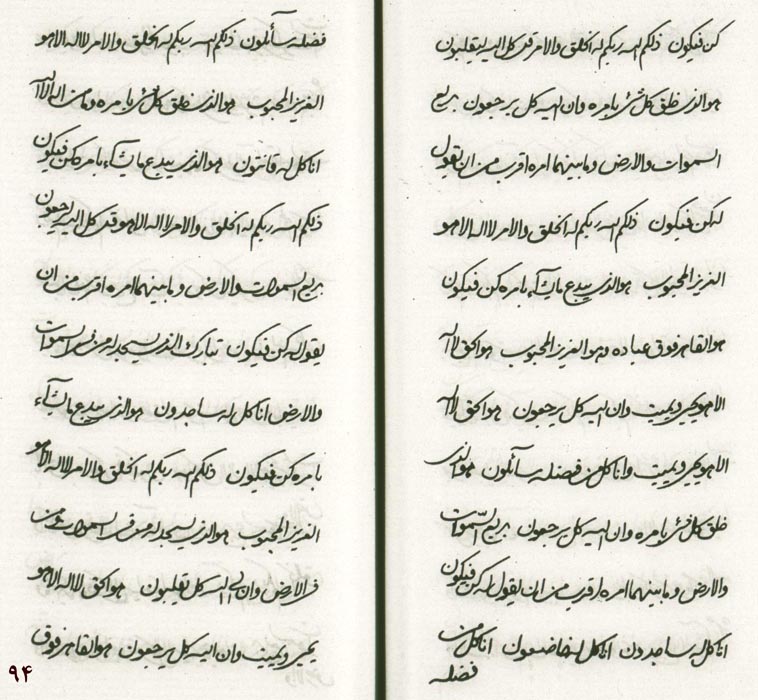 كن فيكون ذلكم الله ربكم له الخلق والامر قل كل اليه ليقلبون
هو الذي خلق كل شئ بامره وان اليه كل يرجعون بديع
السموات والارض وما بينهما امره اقرب من ان يقول
له كن فيكون ذلكم الله ربكم له الخلق والامر لا اله الا هو
العزيز المحبوب هو الذي يبدع ما يشآء بامره كن فيكون
هو القاهر فوق عباده وهو العزيز المحبوب هو الحق لا اله
الا هو يحيي ويميت وان اليه كل يرجعون هو الحق لا اله
الا هو يحيي ويميت وانا كل من فضله سآئلون هو الذي
خلق كل شئ بامره وان اليه كل يرجعون بديع السّموات
والارض وما بينهما امره اقرب من ان يقول له كن فيكون
انا كل له ساجدون انا كل له خاضعون انا كل من
فضله
فضله سآئلون ذلكم الله ربكم له الخلق والامر لا اله الا هو
العزيز المحبوب هو الذي خلق كل شئ بامره وما من اله الا الله
انا كل له قانتون هو الذي يبدع ما يشآء بامره كن فيكون
ذلكم الله ربكم له الخلق والامر لا اله الا هو قل كل اليه ليرجعون
بديع السموات والارض وما بينهما امره اقرب من ان
يقول له كن فيكون تبارك الذي يسجد له من في السموات
والارض انا كل له ساجدون هو الذي يبدع ما يشآء
بامره كن فيكون ذلكم الله ربكم له الخلق والامر لا اله الا هو
العزيز المحبوب هو الذي يسجد له من في السموات ومن
في الارض وان الى الله كل يقلبون هو الحق لا اله الا هو
يحيي ويميت وان اليه كل يرجعون هو القاهر فوق
۹۴